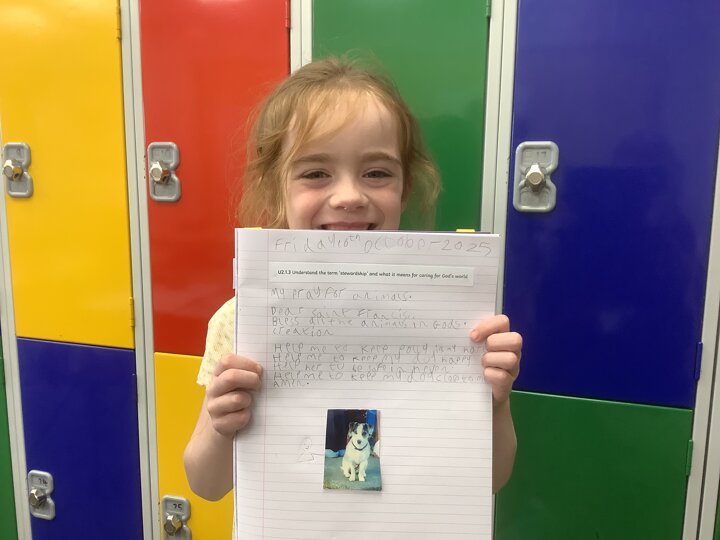 Friday 10th October 2025
U2.1.3 Understand the term 'stewardship' and what it means for caring for God's world
My pray for animals.
Dear Saint Francis.
Bles all the animals in Gods
creation
Help me to keep
Help me to keep my happy
her to be safe in
Help me to keep my dog
Amen.